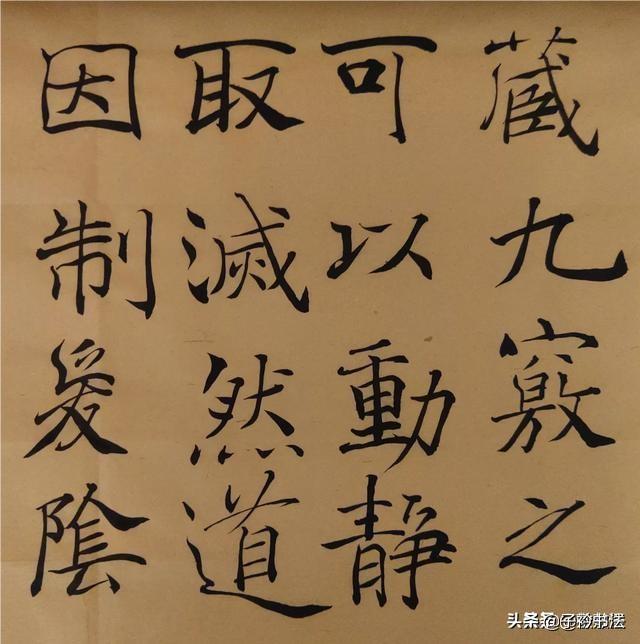 藏九竅之
可以動靜
取滅然道
因制爰陰
头条 书法